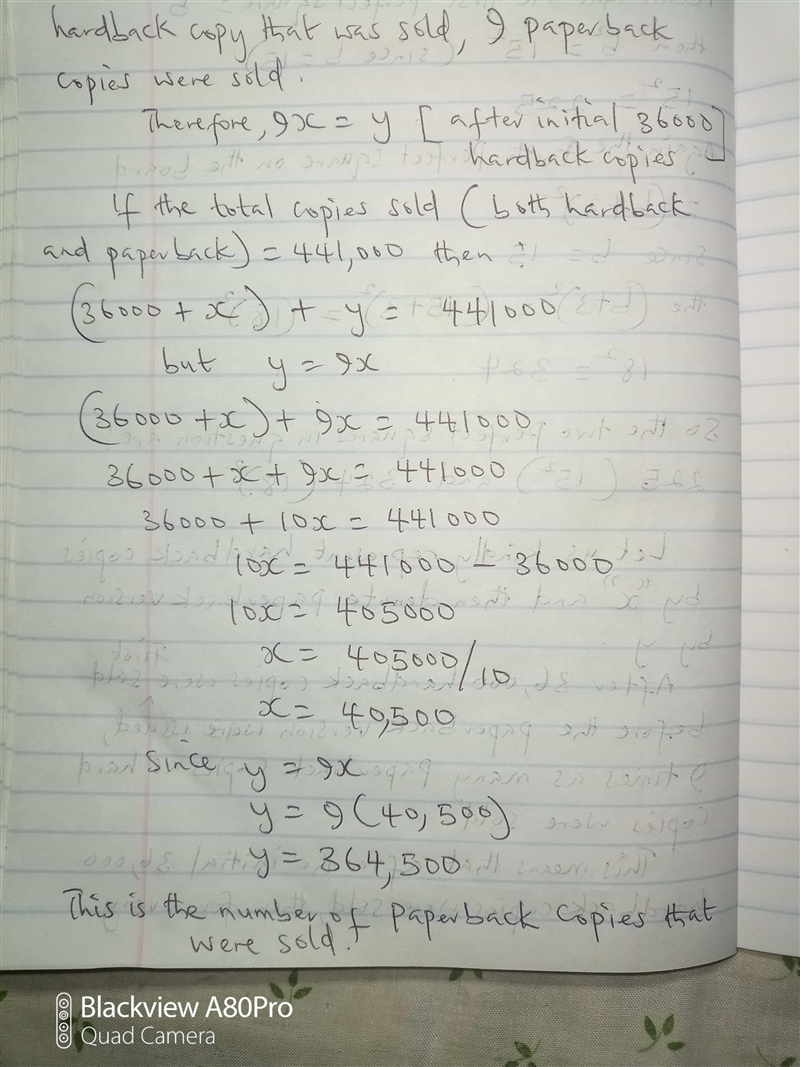 hardback copy that was sold, 9 paperback
copies were sold.
Therefore, 9x = y [after initial 36000]
hardback copies
If the total copies sold (both hardback
and paperback) = 441,000 then :
(36000 + x) + y = 441000
but y = 9x
(36000 + x) + 9x = 441000
36000 + x + 9x = 441000
36000 + 10x = 441000
10x = 441000 - 36000
10x = 405000
x = 405000/10
x = 40,500
Since y = 9x
y = 9(40,500)
y = 364,500
This is the number of Paperback Copies that
were sold.
Blackview A80Pro
Quad Camera